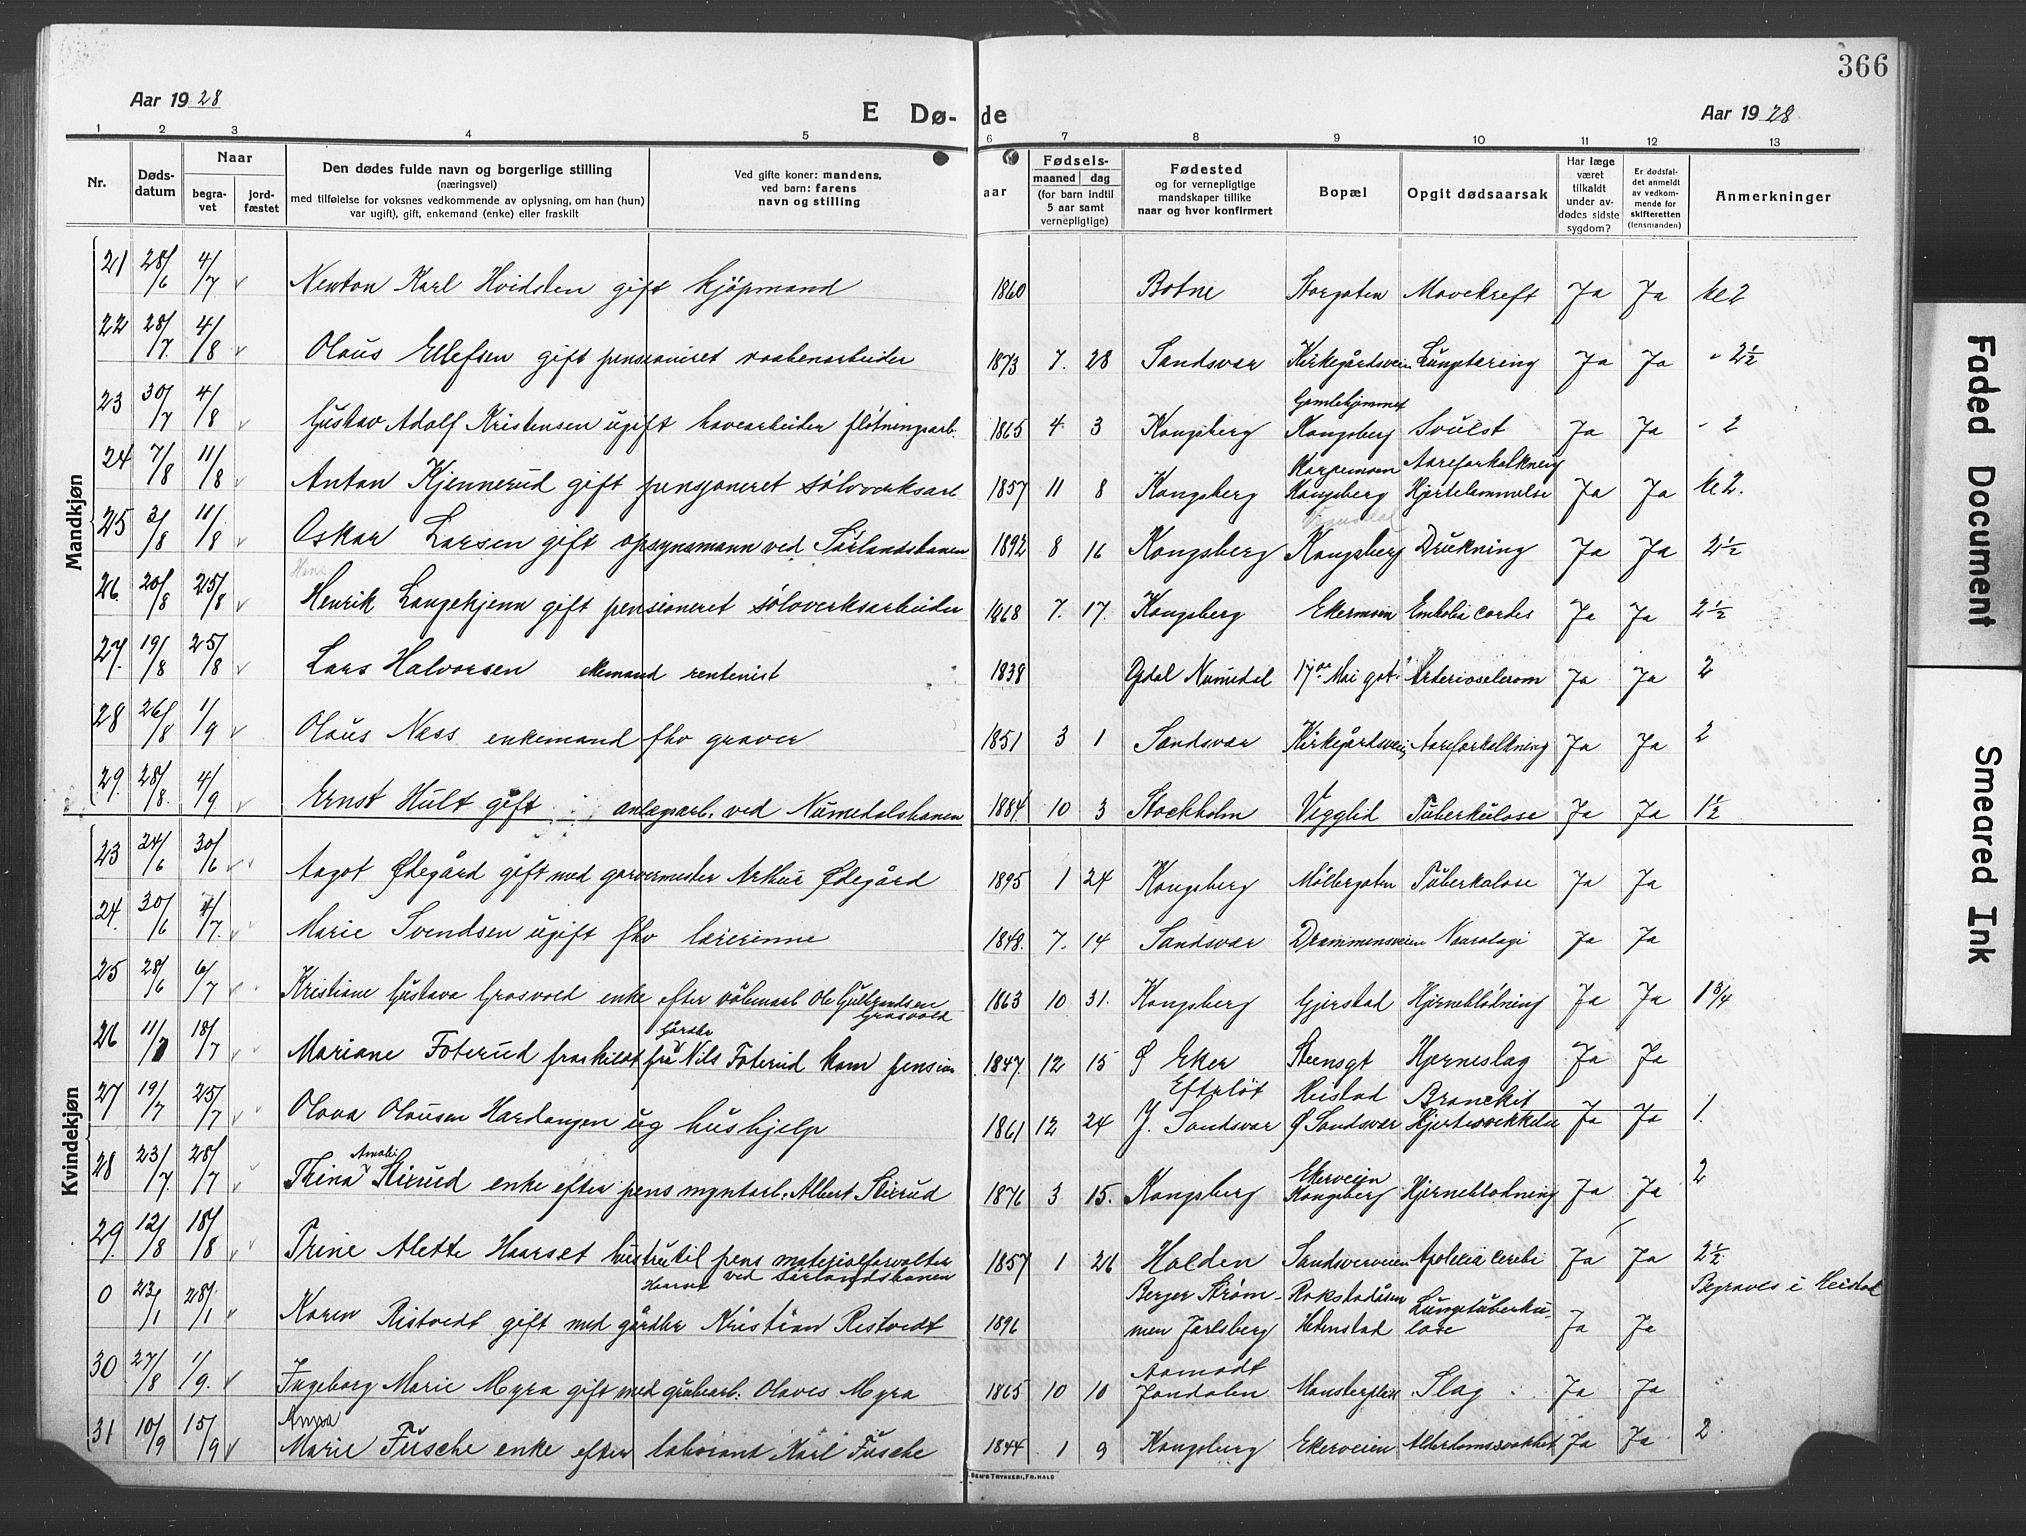 366
Aar 1928
E Dø-
de
Aar 1928
1 2 3 4 5 6 7 8 9 10 11 12 13
Nr.
Døds-
datum
Naar
begra-
vet
jord-
fæstet
Den dødes fulde navn og borgerlige stilling
(næringsvei)
med tilføielse for voksnes vedkommende av oplysning, om han (hun)
var ugift), gift, enkemand (enke) eller fraskilt
Ved gifte koner: mandens,
ved barn: farens
navn og stilling
aar
Fødsels-
maaned dag
(for barn indtil
5 aar samt
vernepligtige)
Fødested
og for vernepligtige
mandskaper tillike
naar og hvor konfirmert
Bopæl
Opgit dødsaarsak
Har læge
været
tilkaldt
under av-
dødes sidste
sygdom?
Er dødsfal-
det anmeldt
av vedkom-
mende for
skifteretten
(lensmanden)
Anmerkninger
Mandkjøn
21 28/6 4/7 v Newton Karl Hvidsten gift kjøpmand 1860 Botne Storgaten Mavekreft Ja Ja kl 2
22 28/7. 4/8 v Olaus Ellefsen gift pensioneret vaabenarbeider 1873 7. 28 Sandsvær Kirkegårdsveien Lungetæring Ja Ja " 2½
Gamlehjemmet
23 30/7 4/8 v Gustav Adolf Kristensen ugift havearbeider fløtningsarb. 1865 4 3 Kongsberg Kongsberg Svulst Ja Ja " 2
Aareforkalkning
24 7/8 11/8 v Anton Kjennerud gift pensjoneret sølvverksarb 1857 11 8 Kongsberg Kongsberg Hjertelammelse Ja Ja kl 2.
25 3/8 11/8 v Oskar Larsen gift opsynsmann ved Sørlandsbanen 1892 8 16 Kongsberg Kongsberg Drukning Ja Ja 2½
Hans
26. 20/8 25/8 v Henrik Langekjenn gift pensioneret sølvverksarbeider 1868 7. 17. Kongsberg Ekermoen Embolia cordis Ja Ja 2½
27. 19/8 25/8 v Lars Halvorsen ekemand rentenist 1838 Opdal Numedal 17de Mai gat. Ja Ja 2
28 26/8 1/9 v Olaus Næss enkemand fhv graver 1851 3 1 Sandsvær Kirkegårdsveien Aareforkalkning Ja Ja 2
29. 28/8. 4/9 v Ernst Hult gift anlægsarb. ved Numedalsbanen 1884 10 3 Stockholm Vegglid Tuberkulose Ja Ja 1½
Kvindekjøn
23 24/6 30/6 v Aagot Ødegård gift med garvermester Arthur Ødegård 1895 1 24 Kongsberg Møllergaten Tuberkulose Ja Ja
24. 30/6 4/7. v Marie Svendsen ugift fhv lærerinne 1848. 7. 14 Sandsvær Drammensveien Ja Ja
25 28/6 6/7 v Kristiane Gustava Grosvold enke efter våbenarb Ole Gulbrandsen
Grosvold 1863 10 31. Kongsberg Gjerstad Hjerneblødning Ja Ja 1¾
Gårdbr
26 11/7 18/7 v Mariane Foterud fraskilt fru Nils Foterud kom pension 1847. 12 15 Ø Eker Steensgt Hjerneslag Ja Ja
Efteløt Heistad Bronckit
27 19/7 25/7 v Olava Olausen Hardangen ug hushjelp 1861 12 24 Y. Sandsvær Ø Sandsvær Hjertesvekkelse Ja Ja 1.
Amalie
Ekerveien
28 23/7 28/7 v Trina Skirud enke efter pens myntarb. Albert Skirud 1876 3 15. Kongsberg Kongsberg Hjerneblødning Ja Ja 2
29. 12/8 18/8 v Trine Alette Haarset hustru til pens materialforvalter
Haarset ved Sørlandsbanen 1857 1 26 Halden Sandsverveien Apoplexia cerebri Ja Ja 2½
Berger Strøm- Rokstadåsen Lungetuberku- Begraves i Heistad
0 23/1 28/1 v Karen Ristvedt gift med gårdbr Kristian Ristvedt 1896 men Jarlsberg Hedenstad lose Ja Ja
Aamodt
30 27/8 1/9. v Ingeborg Marie Myra gift med grubearb. Olaves Myra 1865 10 10 Jondalen Slag Ja Ja
Anna
31 10/9 15/9 v Marie Füsche enke efter laborant Karl Füsche 1844 1 9 Kongsberg Ekerveien Alderdomssvakhet Ja Ja 2
SEN'S TRYKKERI, FR.HALD
Faded Document
Smeared Ink